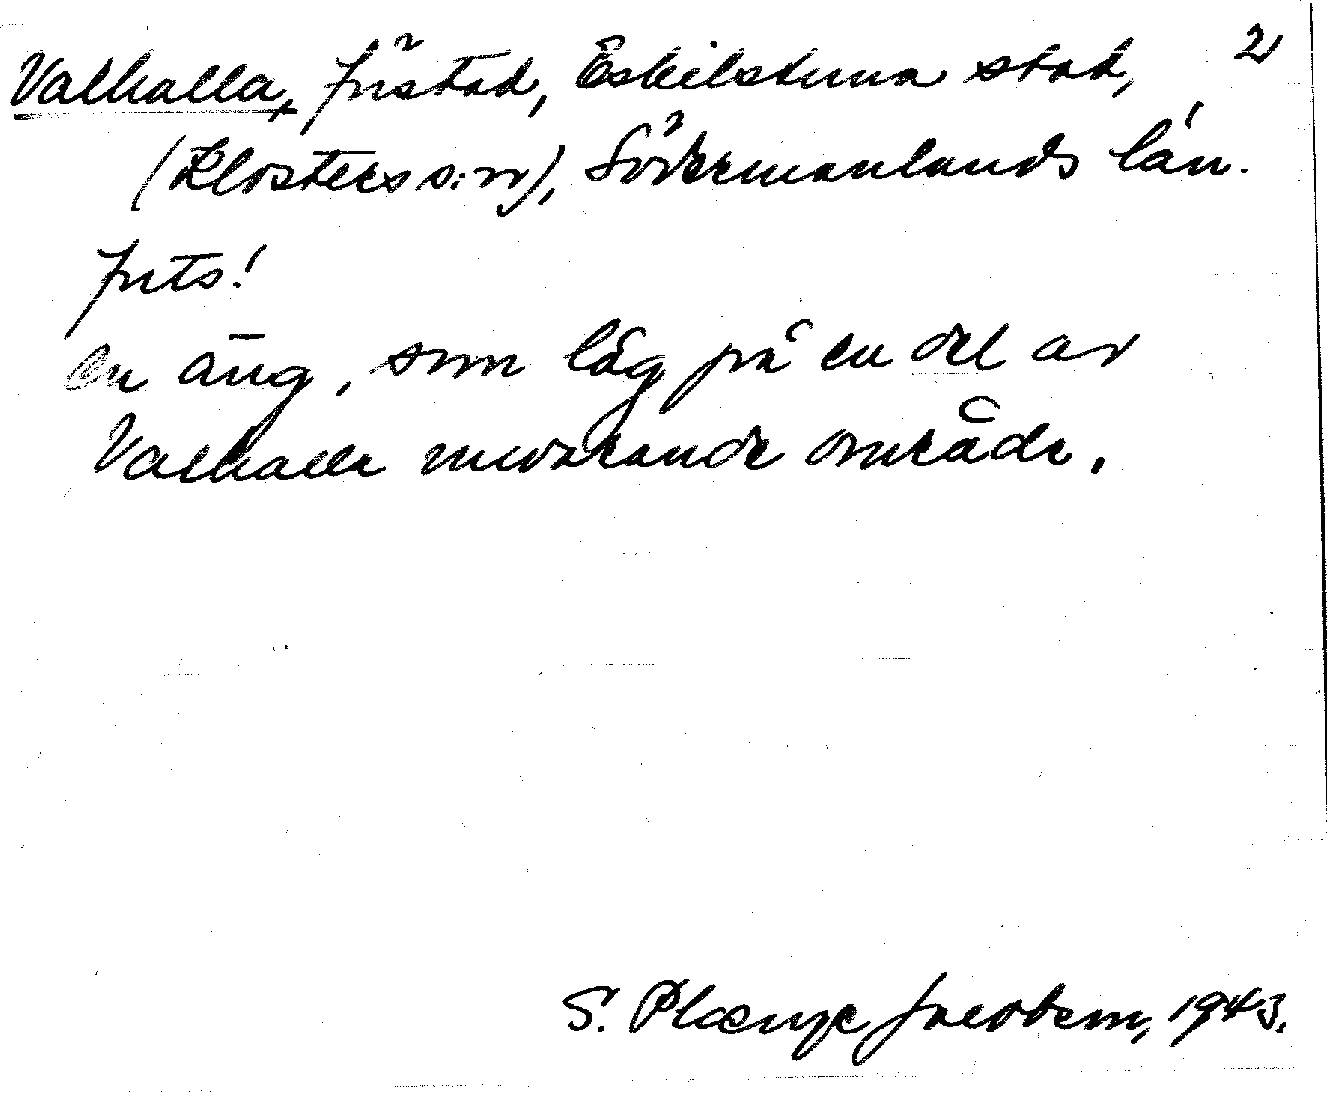 Valhalla, förstad, Eskilstuna stad, 2
(Klosters s:n), Södermanlands län.
forts!
en äng, som låg på en del av
Valhalla nuvarande område.
S. Plænge Jacobson, 1943.